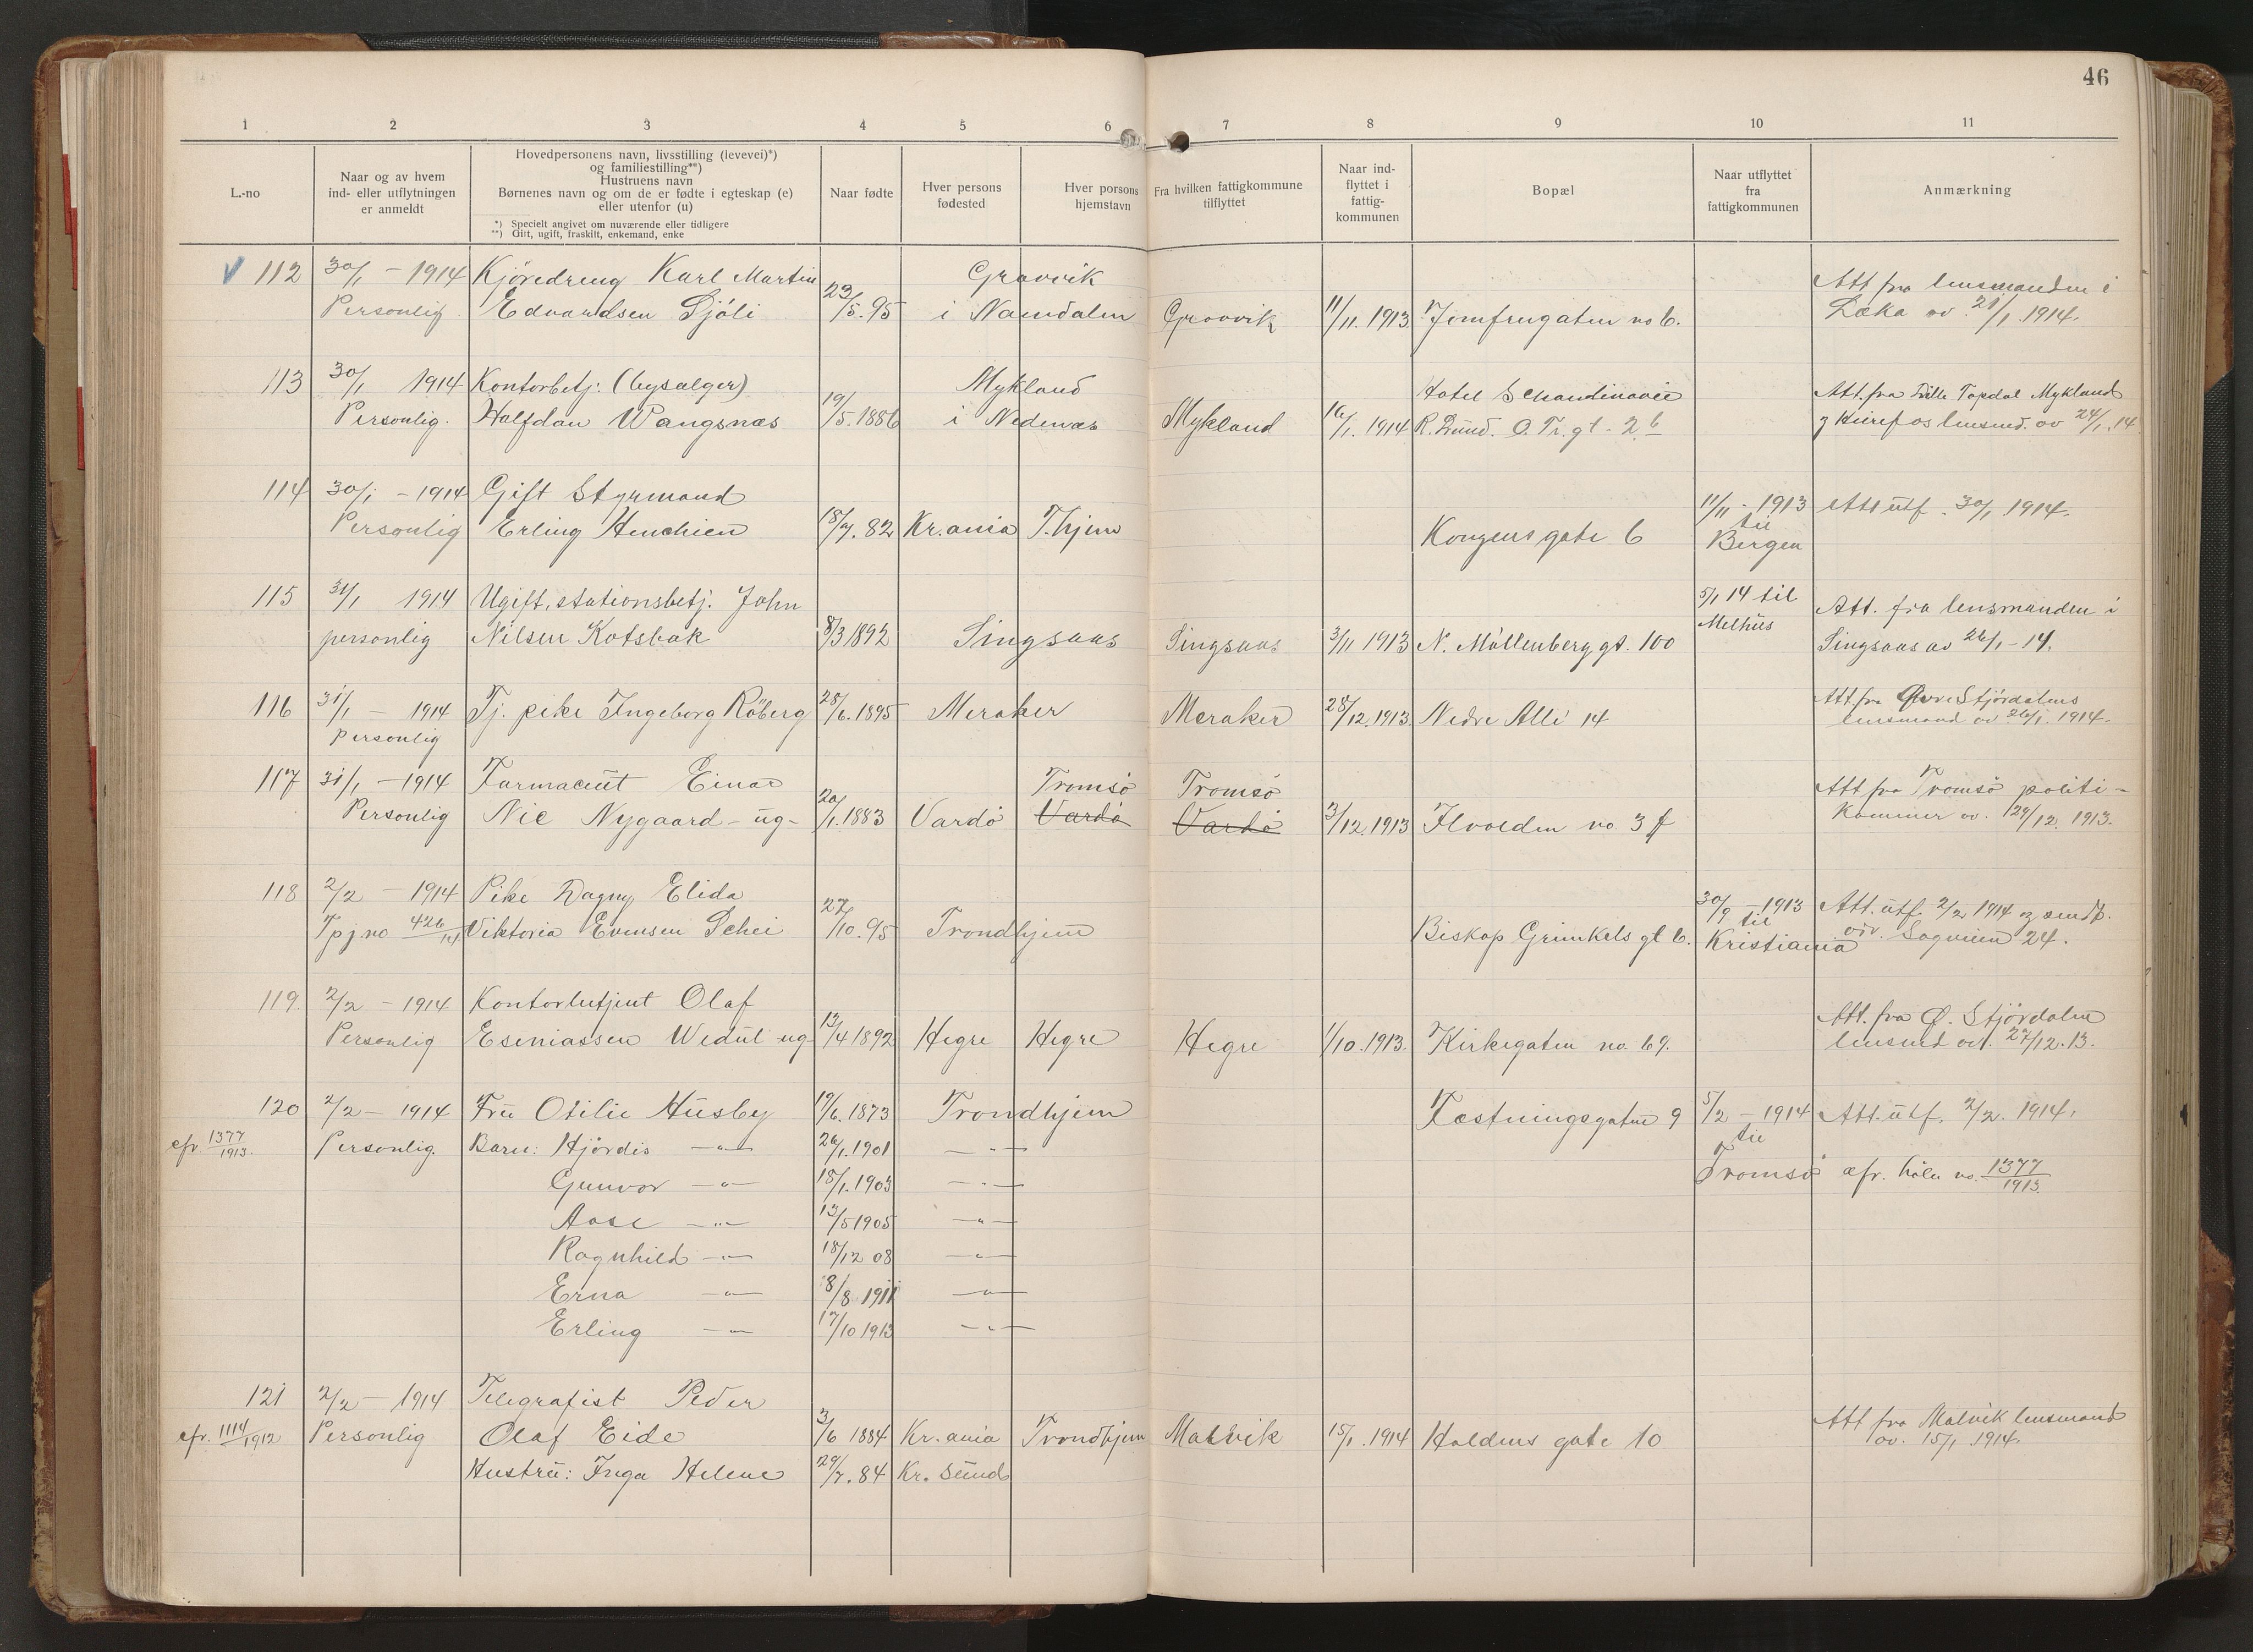 46
1 2 3 4 5 6 7 8 9 10 11
L.-no
Naar og av hvem
ind- eller utflytningen
er anmeldt
Hovedpersonens navn, livsstilling (levevei)*)
og familiestilling**)
Hustruens navn
Børnenes navn og om de er fødte i egteskap (e)
eller utenfor (u)
*) Specielt angivet om nuværende eller tidligere
**) Gift, ugift, fraskilt, enkemand, enke
Naar fødte
Hver persons
fødested
Hver persons
hjemstavn
Fra hvilken fattigkommune
tilflyttet
Naar ind-
flyttet i
fattig-
kommunen
Bopæl
Naar utflyttet
fra
fattigkommunen
Anmærkning
V 112 30/1 - 1914 Kjöredreng Karl Martin Gravvik Att fra lensmanden i
Personlig Edvardsen Sjöli 23/5.95 i Namdalen Gravvik 11/11.1913 Jomfrugaten no 6. Leka av 21/1.1914.
113 30/1 1914 Kontorbetj: (bysælger) Mykland Hotel Schandinavie Att. fra Topdal Mykland
Personlig. Halfdan Wangsnæs 19/5.1886 i Nedenæs Mykland 16/1.1914 R. Lund. O. Tr. gt - 2 b lensmd. av 24/1.14
114 30/1 - 1914 Gift Styrmand 11/11 - 1913 Att utf. 30/1.1914.
Personlig Erling Henchien 18/7.82 Kr.ania T.hjem Kongens gate 6 til
Bergen
115 31/1 1914 Ugift, stationsbetj. John 5/1 14 til Att. fra lensmanden i
personlig Nilsen Kotsbak 8/3 1892 Singsaas Singsaas 3/11 1913 N. Möllenberg gt. 100 Melhus Singsaas av 26/1 - 14.
116 31/1 - 1914 Tj. pike Ingeborg Röberg 28/6.1895 Meraker Meraker 28/12.1913 Nedre Alle 14 Att fra Övre Stjördalens
Personlig lensmand av 26/1.1914.
117 31/1 - 1914 Farmaceut Einar Tromsö Tromsö Att fra Tromsö politi-
Personlig Nic Nygaard - ug - 20/1.1883 Vardö Vardö Vardö 3/12.1913 Ilvolden no 3 f kammer av. 29/12.1913.
118 2/2 - 1914 Pike Dagny Elida 30/9 - 1913 Att. utf 2/2 1914 og sendt.
Tpj no 426/14 Viktoria Evensen Schei 27/10.95 Trondhjem Biskop Grimkels gt 6. til Kristiania adr. Sagveien 24.
119. 2/2 - 1914 Kontorbetjent Olaf Att. fra Ö. Stjördalen
Personlig Eseniassen Wedul ug 13/4 1892 Hegre Hegre Hegre 1/10.1913. Kirkegaten no. 69. lensmd av. 27/12.13.
120 2/2 - 1914 Fru Otilie Husby 19/6.1873 Trondhjem Fæstningsgaten 9 5/2 - 1914 Att. utf. 2/2.1914.
cfr. 1377/1913. Personlig. Barn: Hjördis - " - 26/1.1901 - " - til
Gunvor - " - 18/1.1903 - " - Tromsö cfr. no. 1377/1913.
Aase - " - 13/5 1905 - " -
Ragnhild - " - 18/12 08 - " -
Erna - " - 8/8 1911 - " -
Erling - " - 17/10 1913 - " -
121 2/2 - 1914 Telegrafist Peder Att fra Malvik lensmand
cfr. 1114/1912 Personlig Olaf Eide 3/6 1884 Kr.ania Trondhjem Malvik 15/1.1914 Haldens gate 10 av. 15/1.1914.
Hustru: Inga Helene 29/7.84 Kr. sund